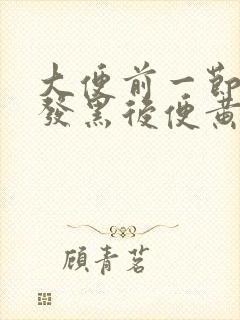 大便前一節
發黑後便黃
顧青茗